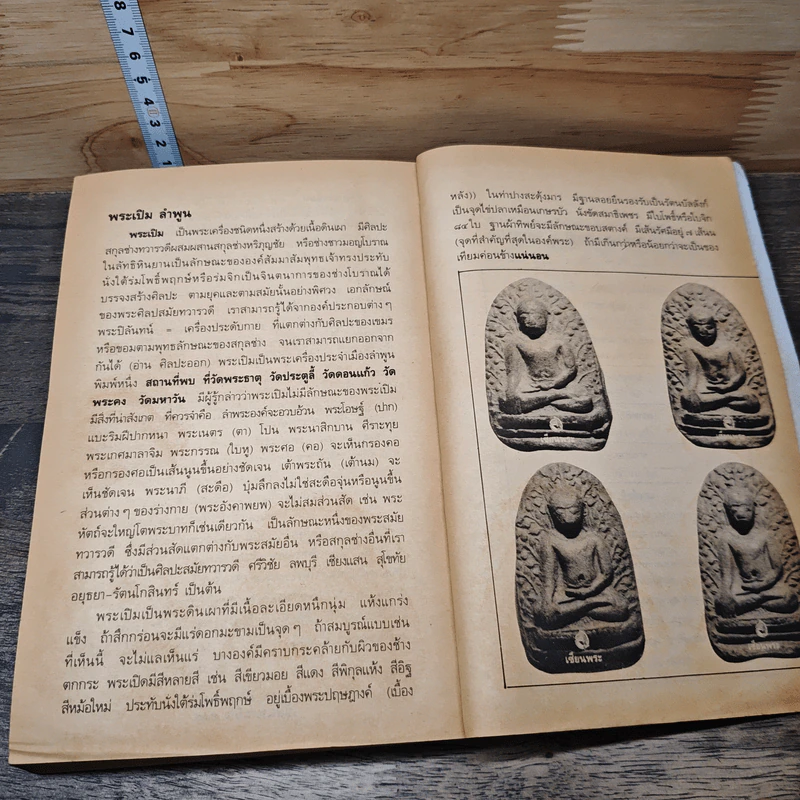 8
7
6
5
4
3
2
1
พระเปิม ลำพูน
พระเปิม เป็นพระเครื่องชนิดหนึ่งสร้างด้วยเนื้อดินเผา มีศิลปะ
สกุลช่างทวารวดีผสมผสานสกุลช่างหริภุญชัย หรือช่างชาวมอญโบราณ
ในลัทธิหินยานเป็นลักษณะขององค์สัมมาสัมพุทธเจ้าทรงประทับ
นั่งใต้ร่มโพธิ์พฤกษ์หรือร่มจิกเป็นจินตนาการของช่างโบราณได้
บรรจงสร้างศิลปะ ตามยุคและตามสมัยนั้นอย่างพิศวง เอกลักษณ์
ของพระศิลปสมัยทวารวดี เราสามารถรู้ได้จากองค์ประกอบต่างๆ
พระปิลันทน์ = เครื่องประดับกาย ที่แตกต่างกับศิลปะของเขมร
หรือขอมตามพุทธลักษณะของสกุลช่าง จนเราสามารถแยกออกจาก
กันได้ (อ่าน ศิลปะออก) พระเปิมเป็นพระเครื่องประจำเมืองลำพูน
พิมพ์หนึ่ง สถานที่พบ ที่วัดพระธาตุ วัดประตูลี้ วัดดอนแก้ว วัด
พระคง วัดมหาวัน มีผู้รู้กล่าวว่าพระเปิมไม่มีลักษณะของพระเปิม
มีสิ่งที่น่าสังเกต ที่ควรจำคือ ลำพระองค์จะอวบอ้วน พระโอษฐ์ (ปาก)
แบะริมฝีปากหนา พระเนตร (ตา) โปน พระนาสิกบาน ศีราะทุย
พระเกศมาลาจิม พระกรรณ (ใบหู) พระศอ (คอ) จะเห็นกรองคอ
หรือกรองคอเป็นเส้นนูนขึ้นอย่างชัดเจน เต้าพระถัน (เต้านม) จะ
เห็นชัดเจน พระนาภี (สะดือ) บุ๋มลึกลงไม่ใช่สะดือจุ่นหรือนูนขึ้น
ส่วนต่างๆ ของร่างกาย (พระอังคาพยพ) จะไม่สมส่วนสัด เช่น พระ
หัตถ์จะใหญ่โตพระบาทก็เช่นเดียวกัน เป็นลักษณะหนึ่งของพระสมัย
ทวารวดี ซึ่งมีส่วนสัดแตกต่างกับพระสมัยอื่น หรือสกุลช่างอื่นที่เรา
สามารถรู้ได้ว่าเป็นศิลปะสมัยทวารวดี ศรีวิชัย ลพบุรี เชียงแสน สุโขทัย
อยุธยา-รัตนโกสินทร์ เป็นต้น
พระเปิมเป็นพระดินเผาที่มีเนื้อละเอียดหนึกนุ่ม แห้งแกร่ง
แข็ง ถ้าสึกกร่อนจะมีแร่ดอกมะขามเป็นจุดๆ ถ้าสมบูรณ์แบบเช่น
ที่เห็นนี้ จะไม่แลเห็นแร่ บางองค์มีคราบกระคล้ายกับผิวของช้าง
ตกกระ พระเปิดมีสีหลายสี เช่น สีเขียวมอย สีแดง สีพิกุลแห้ง สีอิฐ
สีหม้อใหม่ ประทับนั่งใต้ร่มโพธิ์พฤกษ์ อยู่เบื้องพระปฤษฎางค์ (เบื้อง
หลัง)) ในท่าปางสะดุ้งมาร มีฐานลอยยืนรองรับเป็นรัตนบัลลังก์
เป็นจุดไข่ปลาเหมือนเกษรบัว นั่งขัดสมาธิเพชร มีใบโพธิ์หรือใบจิก
๘๔ ใบ ฐานผ้าทิพย์จะมีลักษณะขอบสตางค์ มีเส้นรัศมีอยู่ ๗ เส้นน
(จุดที่สำคัญที่สุดในองค์พระ) ถ้ามีเกินกว่าหรือน้อยกว่าจะเป็นของ
เทียมค่อนข้างแน่นอน
เซียนพระ